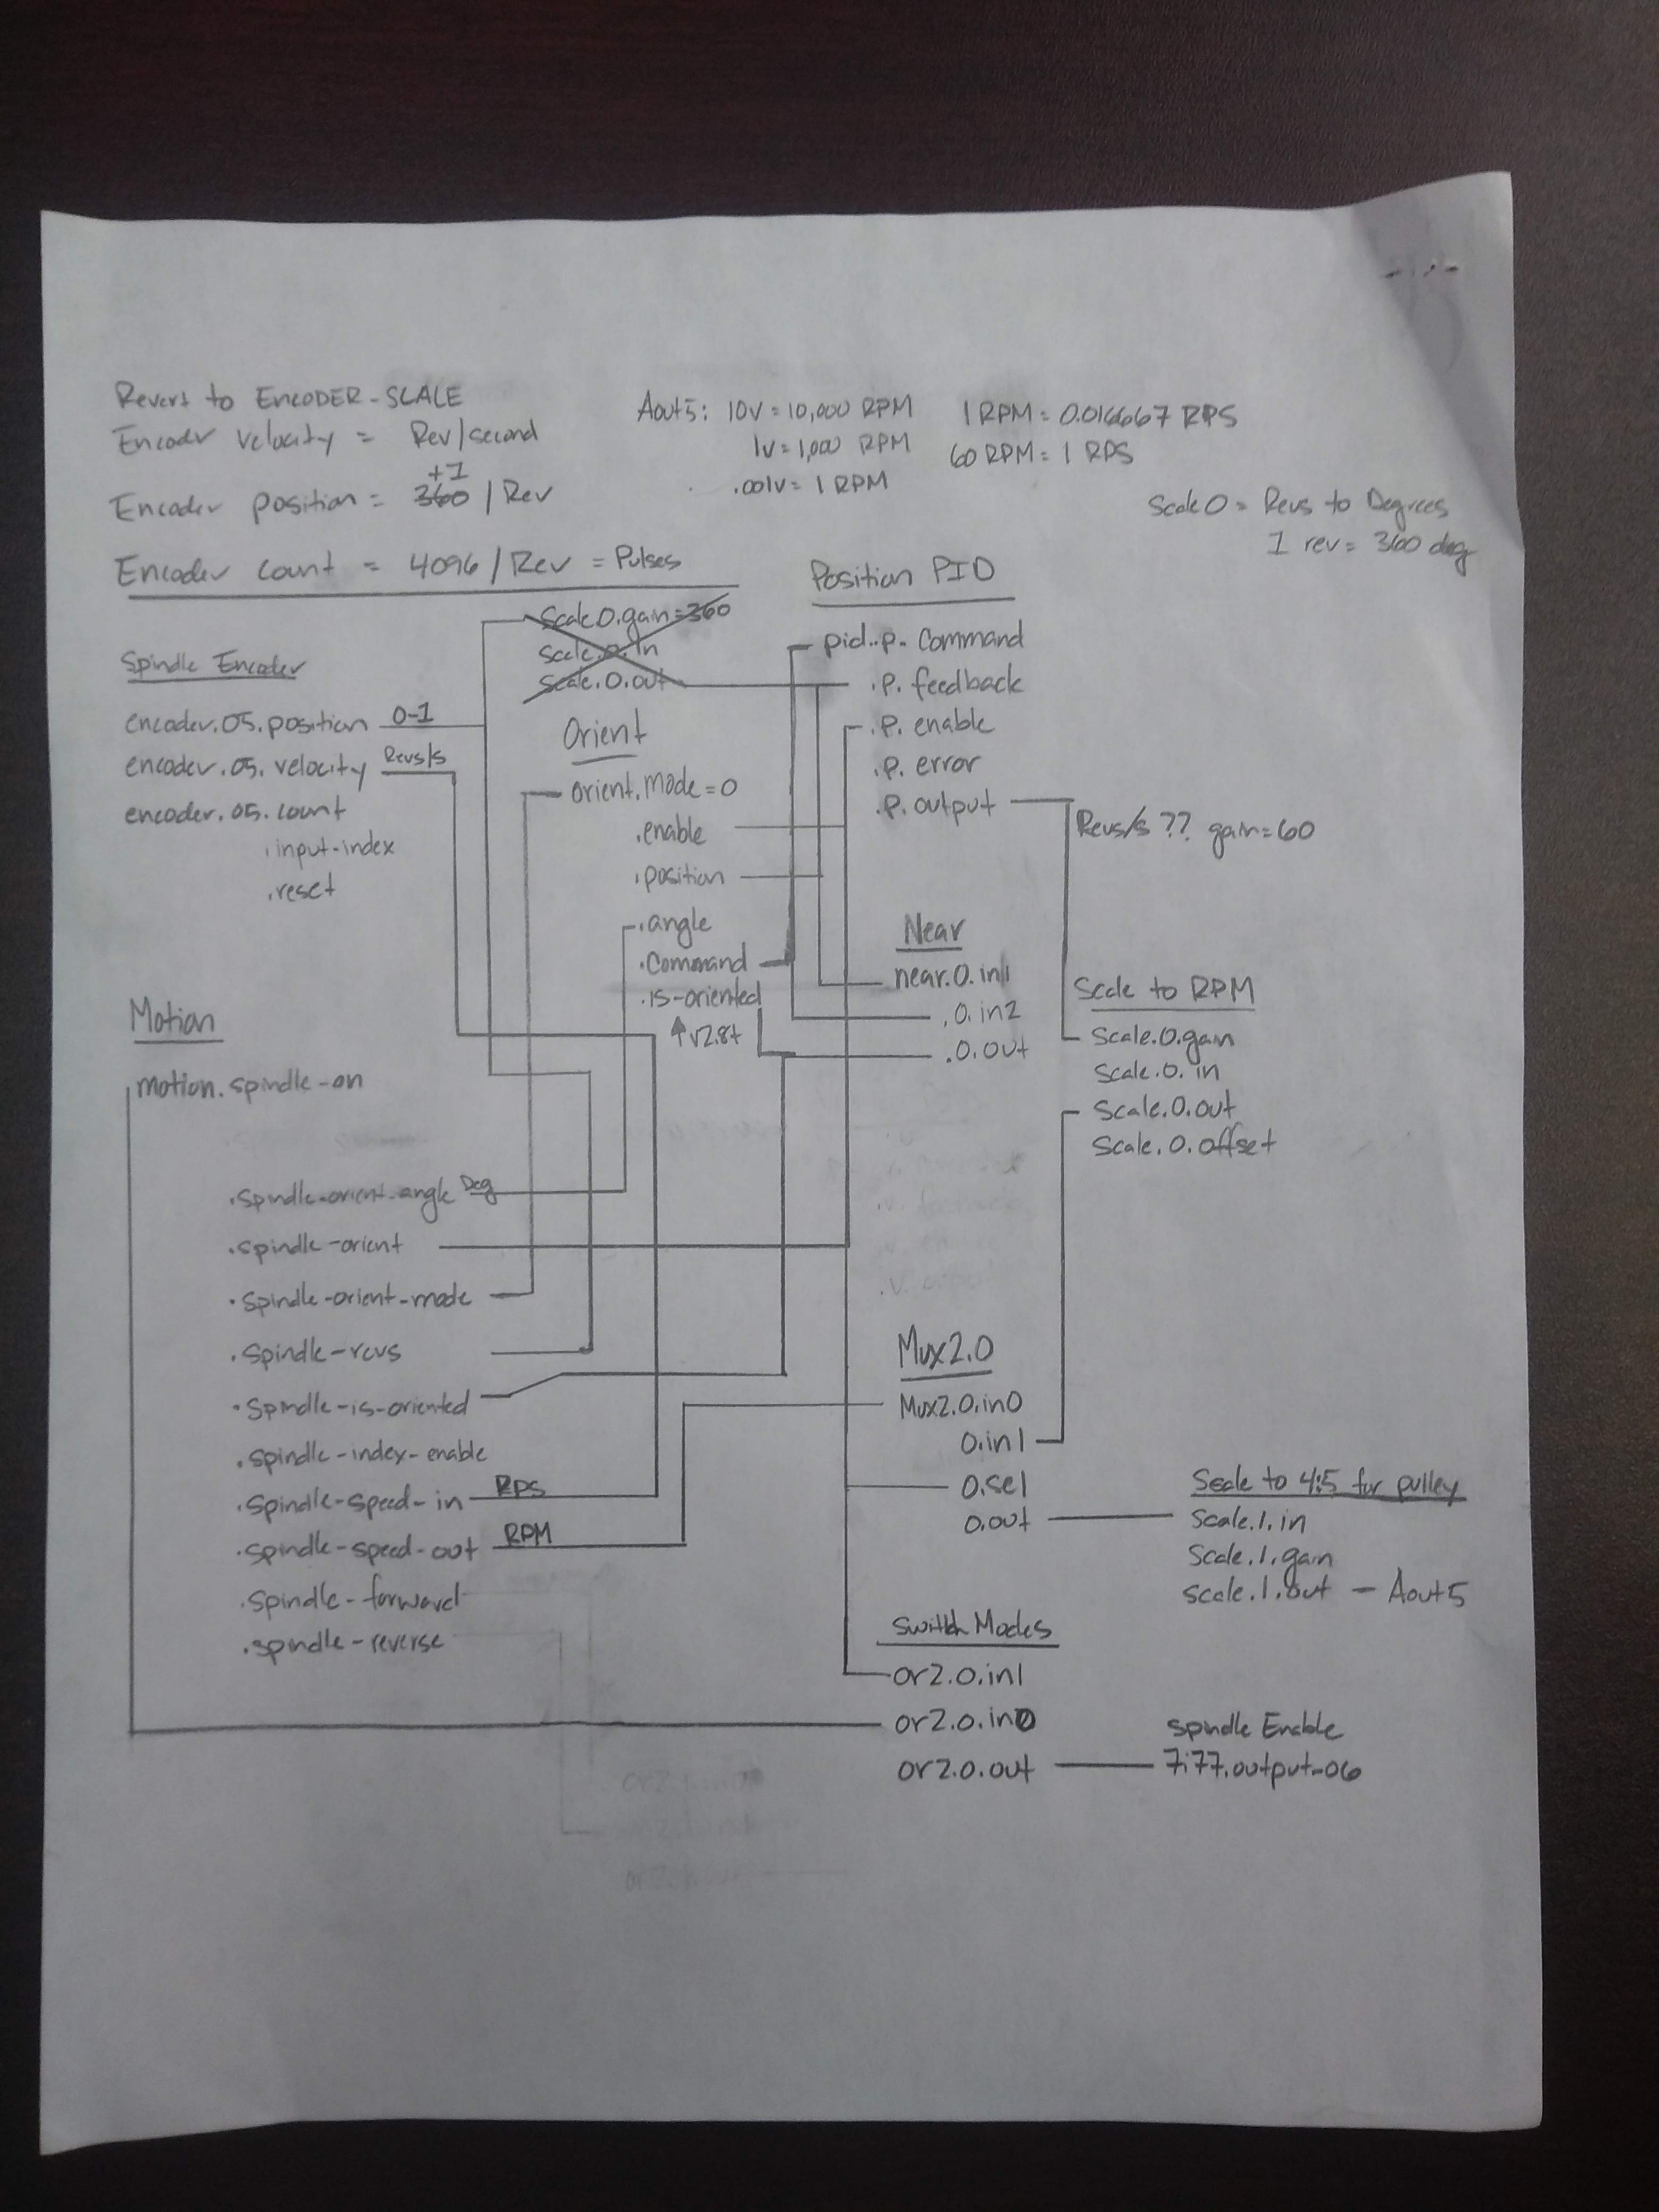 Revert to ENCODER-SCALE
Encoder velocity = Rev/second
+1
Encoder position = 360 / Rev
Encoder count = 4096 / Rev = Pulses
Aout5: 10v = 10,000 RPM
1v = 1,000 RPM
.001v = 1 RPM
1 RPM = 0.016667 RPS
60 RPM = 1 RPS
Scale 0 = Revs to Degrees
1 rev = 360 deg
Scale 0.gain=360
Scale.0.in
Scale.0.out
Position PID
pid.p.Command
.p.feedback
.p.enable
.p.error
.p.output
Revs/s ?? gain=60
Spindle Encoder
encoder.05.position 0-1
encoder.05.velocity Revs/s
encoder.05.count
.input-index
.reset
Orient
orient.mode=0
.enable
.position
.angle
.Command
.is-oriented
↑ v2.8+
Near
near.0.in1
.0.in2
.0.out
Scale to RPM
Scale.0.gain
Scale.0.in
Scale.0.out
Scale.0.offset
Motion
motion.spindle-on
.spindle-orient-angle Deg
.spindle-orient
.spindle-orient-mode
.spindle-revs
.spindle-is-oriented
.spindle-index-enable
.spindle-speed-in RPS
.spindle-speed-out RPM
.spindle-forward
.spindle-reverse
Mux2.0
Mux2.0.in0
0.in1
0.sel
0.out
Scale to 4:5 for pulley
Scale.1.in
Scale.1.gain
Scale.1.out - Aout5
Switch Modes
or2.0.in1
or2.0.in0
or2.0.out
Spindle Enable
7i77.output-06